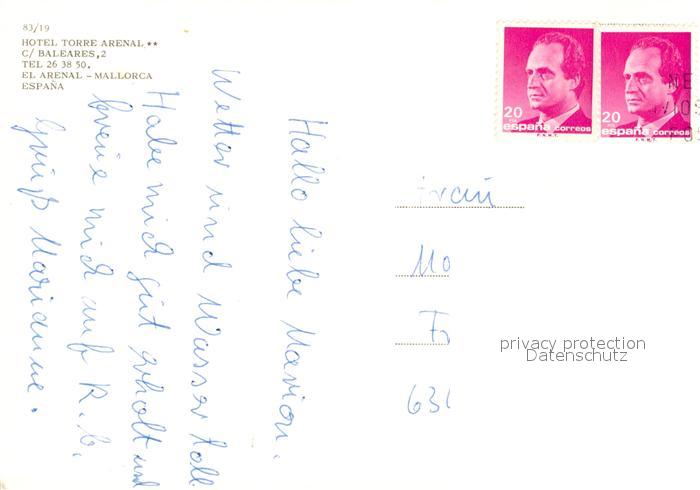 83/19
HOTEL TORRE ARENAL **
C/ BALEARES, 2
TEL 26 38 50.
EL ARENAL - MALLORCA
ESPAÑA
Hallo liebe Marion,
Wetter und Wasser toll
Habe mich gut erholt und
freue mich auf R. b.
Gruß Marianne.
20
PTA
españa correos
F.N.M.T.
20
PTA
españa correos
F.N.M.T.
NE
Frau
Mo
Fr
631
privacy protection
Datenschutz